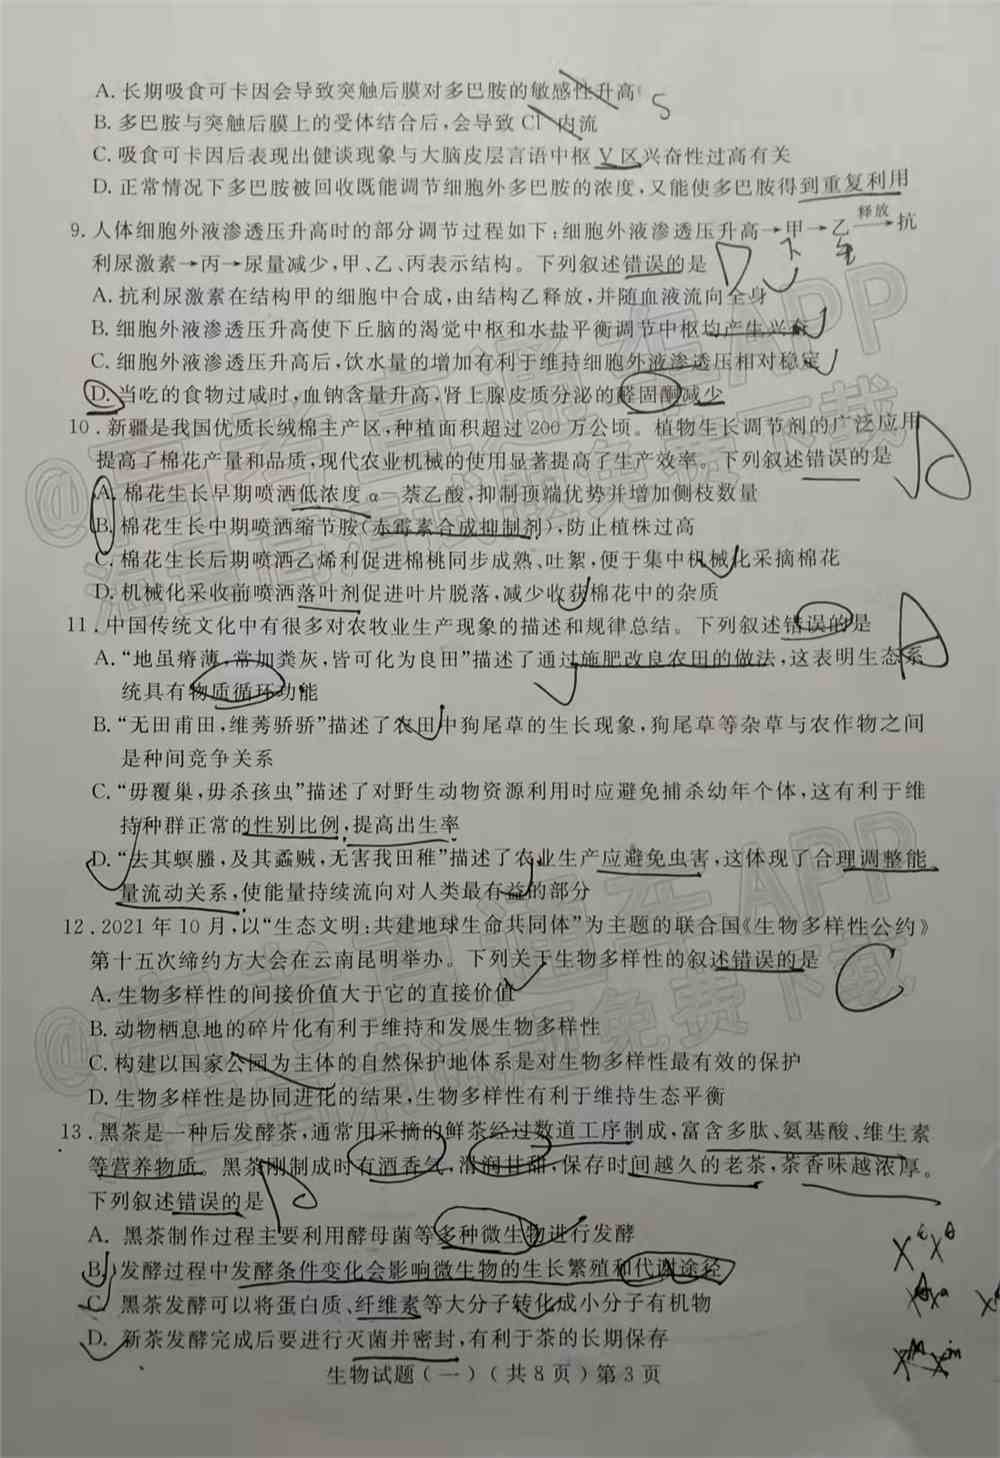 A. 长期吸食可卡因会导致突触后膜对多巴胺的敏感性升高
B. 多巴胺与突触后膜上的受体结合后,会导致 Cl⁻ 内流
C. 吸食可卡因后表现出健谈现象与大脑皮层言语中枢 V 区兴奋性过高有关
D. 正常情况下多巴胺被回收既能调节细胞外多巴胺的浓度,又能使多巴胺得到重复利用
9. 人体细胞外液渗透压升高时的部分调节过程如下:细胞外液渗透压升高→甲→乙 释放→抗
利尿激素→丙→尿量减少,甲、乙、丙表示结构。下列叙述错误的是
A. 抗利尿激素在结构甲的细胞中合成,由结构乙释放,并随血液流向全身
B. 细胞外液渗透压升高使下丘脑的渴觉中枢和水盐平衡调节中枢均产生兴奋
C. 细胞外液渗透压升高后,饮水量的增加有利于维持细胞外液渗透压相对稳定
D. 当吃的食物过咸时,血钠含量升高,肾上腺皮质分泌的醛固酮减少
10. 新疆是我国优质长绒棉主产区,种植面积超过 200 万公顷。植物生长调节剂的广泛应用
提高了棉花产量和品质,现代农业机械的使用显著提高了生产效率。下列叙述错误的是
A. 棉花生长早期喷洒低浓度 α-萘乙酸,抑制顶端优势并增加侧枝数量
B. 棉花生长中期喷洒缩节胺(赤霉素合成抑制剂),防止植株过高
C. 棉花生长后期喷洒乙烯利促进棉桃同步成熟、吐絮,便于集中机械化采摘棉花
D. 机械化采收前喷洒落叶剂促进叶片脱落,减少收获棉花中的杂质
11. 中国传统文化中有很多对农牧业生产现象的描述和规律总结。下列叙述错误的是
A. “地虽瘠薄,常加粪灰,皆可化为良田”描述了通过施肥改良农田的做法,这表明生态系
统具有物质循环功能
B. “无田甫田,维莠骄骄”描述了农田中狗尾草的生长现象,狗尾草等杂草与农作物之间
是种间竞争关系
C. “毋覆巢,毋杀孩虫”描述了对野生动物资源利用时应避免捕杀幼年个体,这有利于维
持种群正常的性别比例,提高出生率
D. “去其螟螣,及其蟊贼,无害我田稚”描述了农业生产应避免虫害,这体现了合理调整能
量流动关系,使能量持续流向对人类最有益的部分
12. 2021 年 10 月,以“生态文明:共建地球生命共同体”为主题的联合国《生物多样性公约》
第十五次缔约方大会在云南昆明举办。下列关于生物多样性的叙述错误的是
A. 生物多样性的间接价值大于它的直接价值
B. 动物栖息地的碎片化有利于维持和发展生物多样性
C. 构建以国家公园为主体的自然保护地体系是对生物多样性最有效的保护
D. 生物多样性是协同进化的结果,生物多样性有利于维持生态平衡
13. 黑茶是一种后发酵茶,通常用采摘的鲜茶经过数道工序制成,富含多肽、氨基酸、维生素
等营养物质。黑茶刚制成时有酒香气,滑润甘甜,保存时间越久的老茶,茶香味越浓厚。
下列叙述错误的是
A. 黑茶制作过程主要利用酵母菌等多种微生物进行发酵
B. 发酵过程中发酵条件变化会影响微生物的生长繁殖和代谢途径
C. 黑茶发酵可以将蛋白质、纤维素等大分子转化成小分子有机物
D. 新茶发酵完成后要进行灭菌并密封,有利于茶的长期保存
生物试题(一)(共 8 页)第 3 页